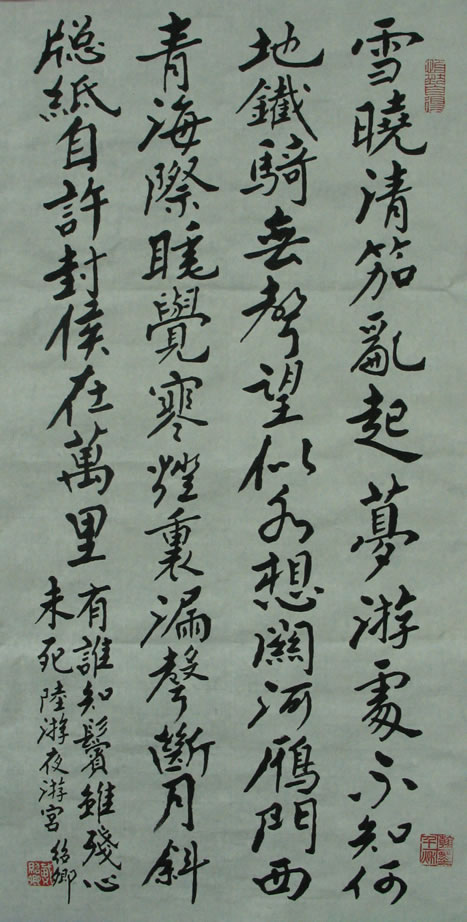 雪曉清笳亂起夢游處不知何
地鐵騎無聲望似水想關河雁門西
青海際睡覺寒燈裏漏聲斷月斜
牕紙自許封侯在萬里
有誰知鬢雖殘心
未死陸游夜游宮 紹卿